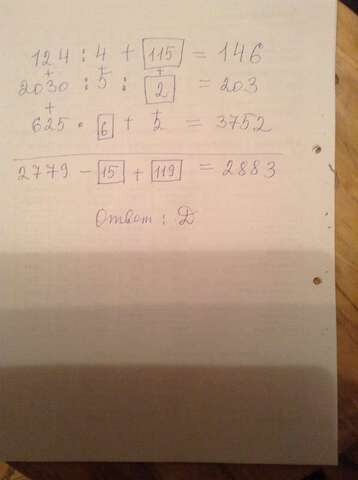 124 : 4 + 115 = 146
+ + +
2030 : 5 : 2 = 203
+ +
625 · 6 + 2 = 3752
2779 - 15 + 119 = 2883
Ответ : Д